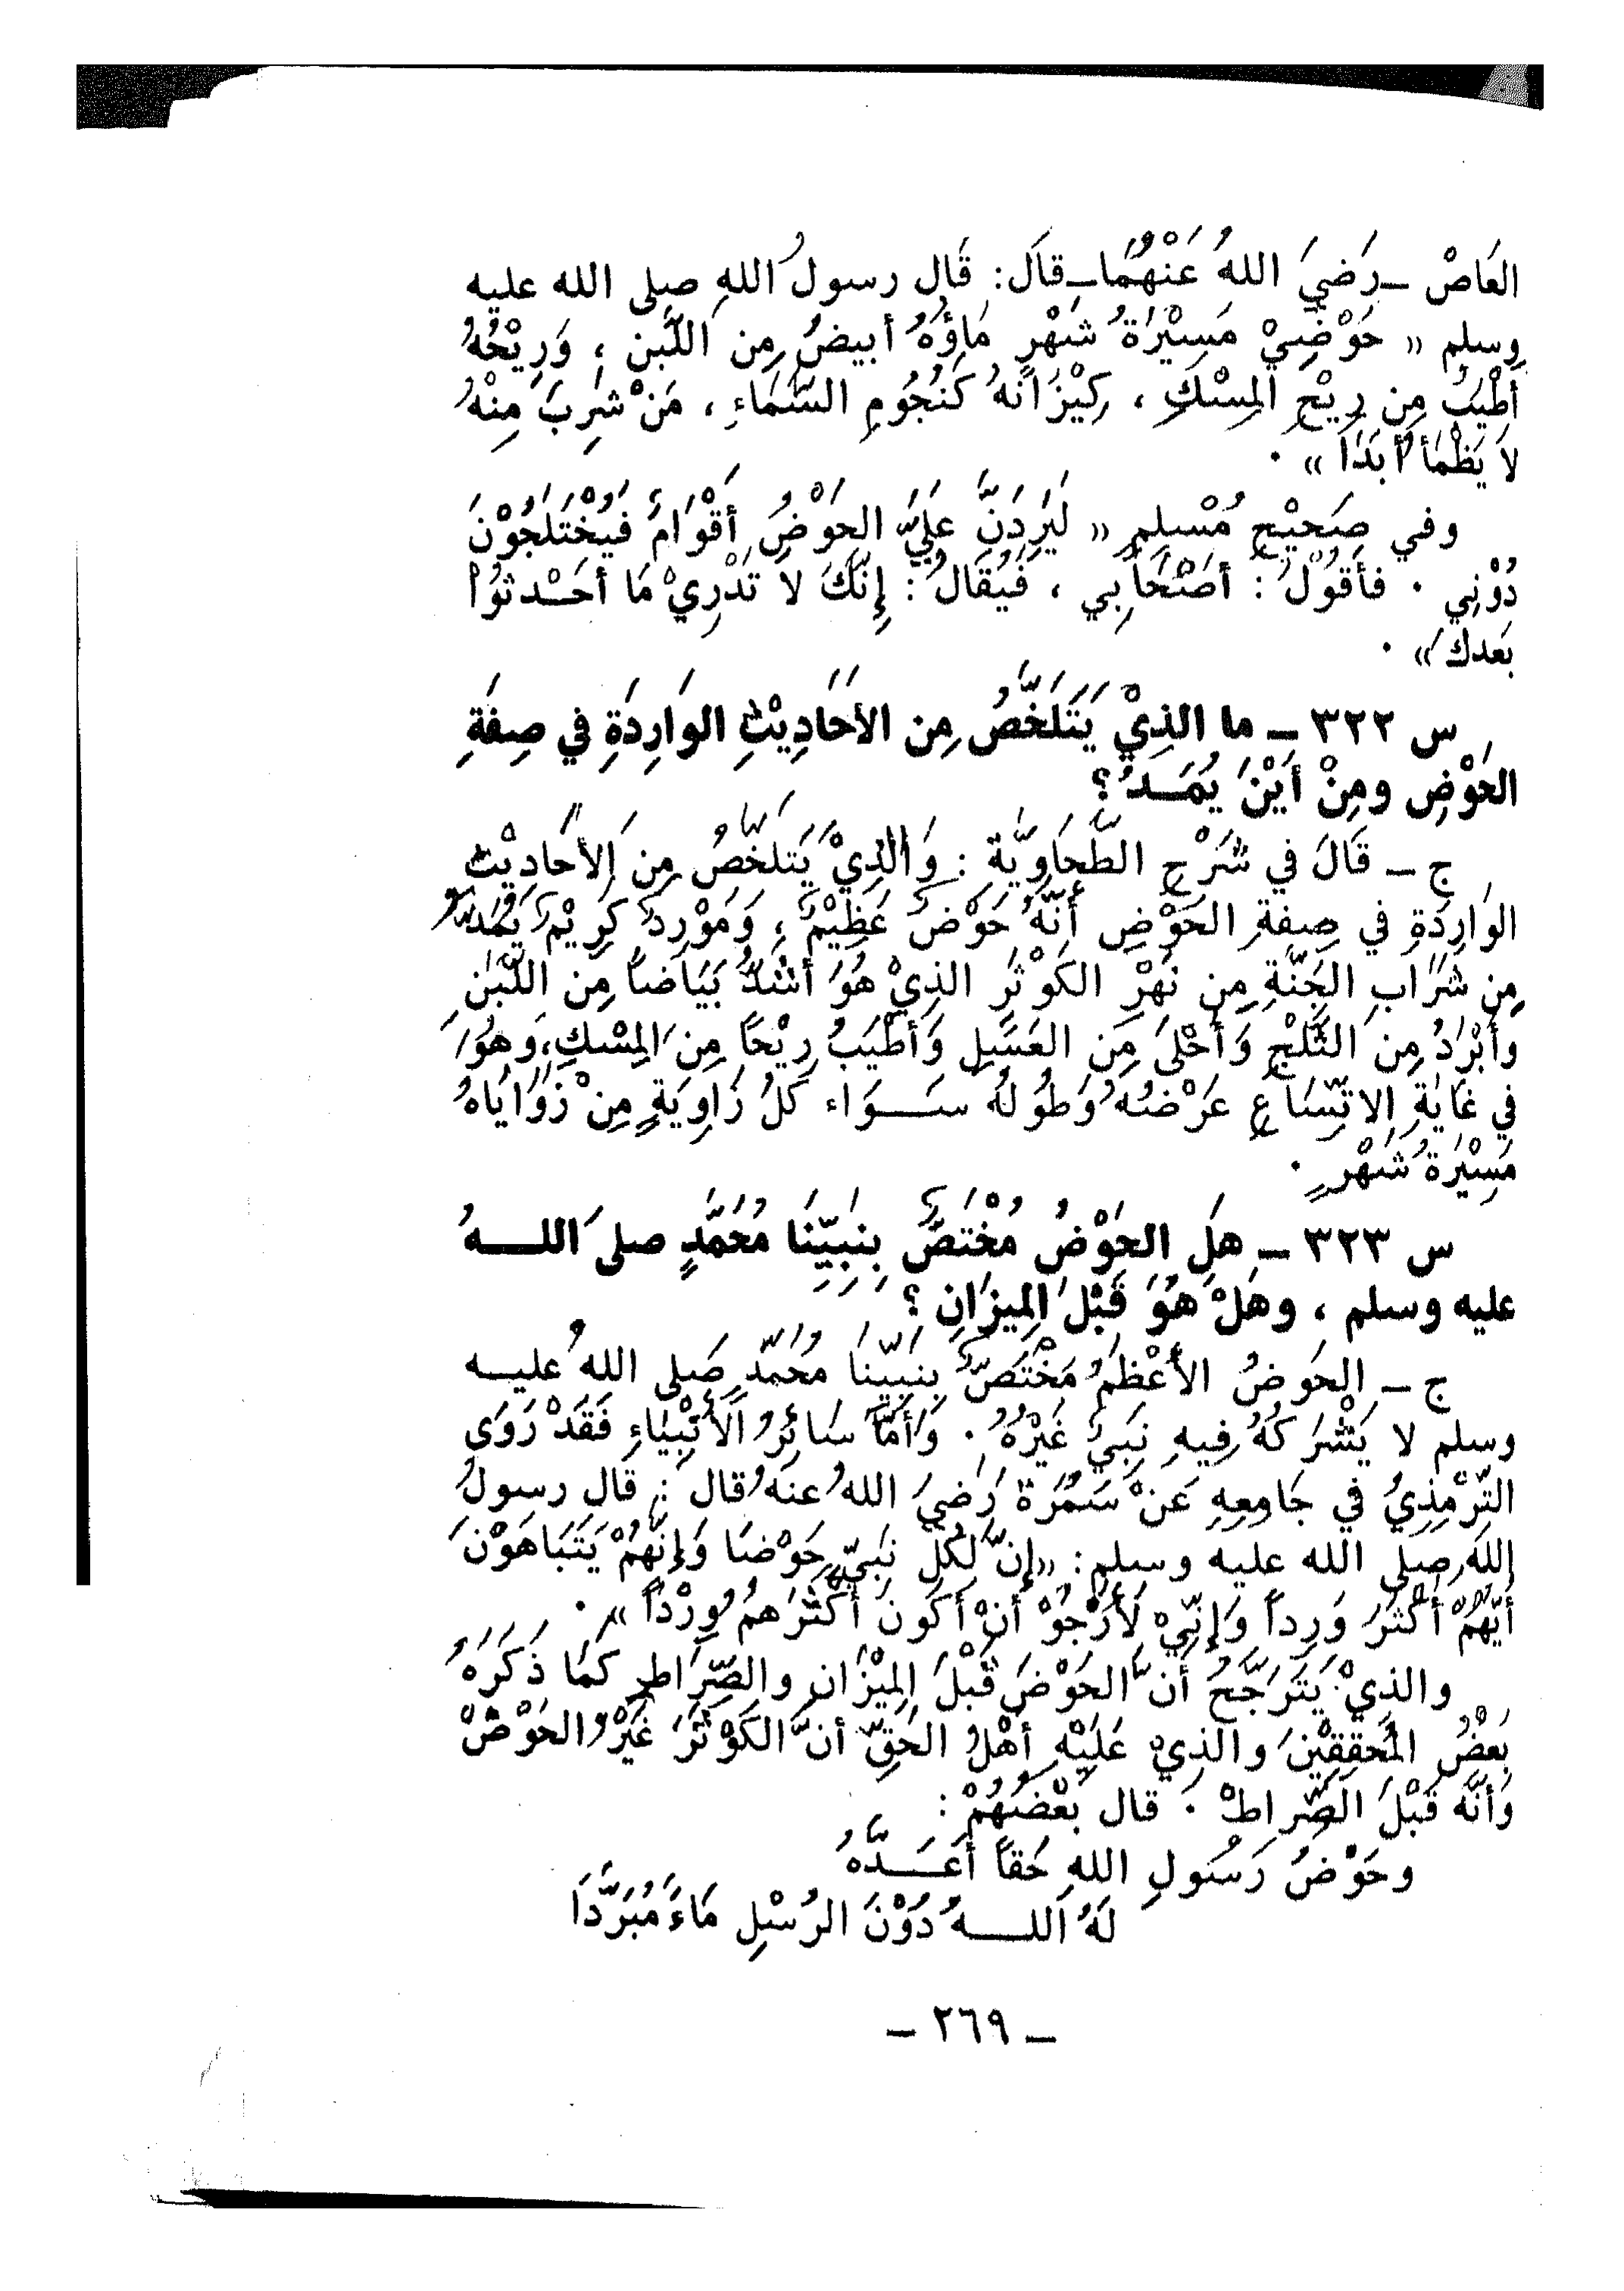 العَاصْ – رَضيَ اللهُ عَنْهُمَا – قَالَ: قَال رسولُ اللهِ صلى الله عليه
وسلم « حَوْضِيْ مَسِيْرَةُ شَهْرٍ مَاؤُهُ أبيضُ مِن اللَّبن ، وَرِيْحُهُ
أطْيَبُ مِن رِيْحِ المِسْكِ ، كِيْزَانُهُ كَنُجُومِ السَّمَاءِ ، مَنْ شَرِبَ مِنْهُ
لاَ يَظْمَأُ أبَدَاً » ٠
وفي صَحيْحِ مُسْلِمٍ « لَيَرِدَنَّ عَلَيَّ الحَوْضُ أقْوَامٌ فَيُخْتَلَجُوْنَ
دُوْنِي ٠ فأَقُوْلُ : أصْحَابي ، فَيُقَالُ : إِنَّكَ لاَ تَدْرِيْ مَا أحَـدْثوُا
بَعدكَ » ٠
س ٣٢٢ – ما الذِيْ يَتَلَخَّصُ مِن الأحَادِيْثِ الوَارِدَةِ في صِفَةِ
الحَوْضِ ومِنْ أيْنَ يُمَـدُ ؟
ج – قَالَ في شَرْحِ الطَّحَاوِيَّةِ : وَالذِيْ يَتَلَخَّصُ مِن الأحَادِيْثِ
الوَارِدَةِ في صِفةِ الحَوْضِ أنَّهُ حَوْضٌ عَظِيْمٌ ، وَمَوْرِدٌ كَرِيْمٌ يُمَدُّ
مِن شَرَابِ الجَنَّةِ مِن نَهْرِ الكَوْثَرِ الذِيْ هُوَ أشَدُّ بَيَاضاً مِن اللَّبَنِ
وَأبْرَدُ مِن الثَّلْجِ وَأَحْلَى مِن العَسَلِ وَأطْيَبُ رِيْحَاً مِن المِسْكِ، وهُوَ
في غَايَةِ الاتِّسَاعِ عَرْضُهُ وَطُولُهُ سَـوَاء كُلُ زَاوِيَةٍ مِنْ زَوَايَاهُ
مَسِيْرَةُ شَهْرٍ ٠
س ٣٢٣ – هَلِ الحَوْضُ مُخْتَصٌ بِنَبِيِّنَا مُحَمَّدٍ صلى اللـهُ
عليه وسلم ، وهَلْ هُوَ قَبْلَ المِيزَانِ ؟
ج – الحَوضُ الأعْظَمُ مَخْتَصٌ بِنَبِيِّنَا مُحَمَّدٍ صَلى اللهُ عليـه
وسلم لا يَشْرَكُهُ فِيهِ نَبيٌ غَيْرُهُ ٠ وَأَمَّا سَائِرُ الأنْبِيَاءِ فَقَدْ رَوَى
التِّرْمِذِيُ في جَامِعِهِ عَنْ سَمُرَة رَضيَ اللهُ عنهُ قال : قال رسولُ
اللهِ صلى الله عليه وسلم: «إنَّ لِكُلِّ نَبيٍّ حَوْضَاً وَإنَّهُمْ يَتَبَاهَوْنَ
أيَّهُمْ أكْثَرُ وَرِداً وَإنِّيْ لَأَرْجُوْ أنْ أكُونَ أكْثَرَهمُ وِرْدَاً » ٠
والذِيْ يَتَرَجَّحُ أنَّ الحَوْضَ قَبْلَ المِيْزَانِ والصِّرَاطِ كَمَا ذَكَرَهُ
بَعْضُ المُحَققِيْنَ والَّذِيْ عَلَيْهِ أهْلُ الحَقِّ أنَّ الكَوْثَرَ غَيْرُ الحَوْضْ
وَأَنَّهُ قَبْلَ الصِّرَاطْ ٠ قال بَعْضُهُمْ :
وحَوْضُ رَسُولِ اللهِ حَقاً أعَـدَّهُ
لَهُ اللـهُ دُوْنَ الرُسْلِ مَاءً مُبَرَّدَا
– ٢٦٩ –